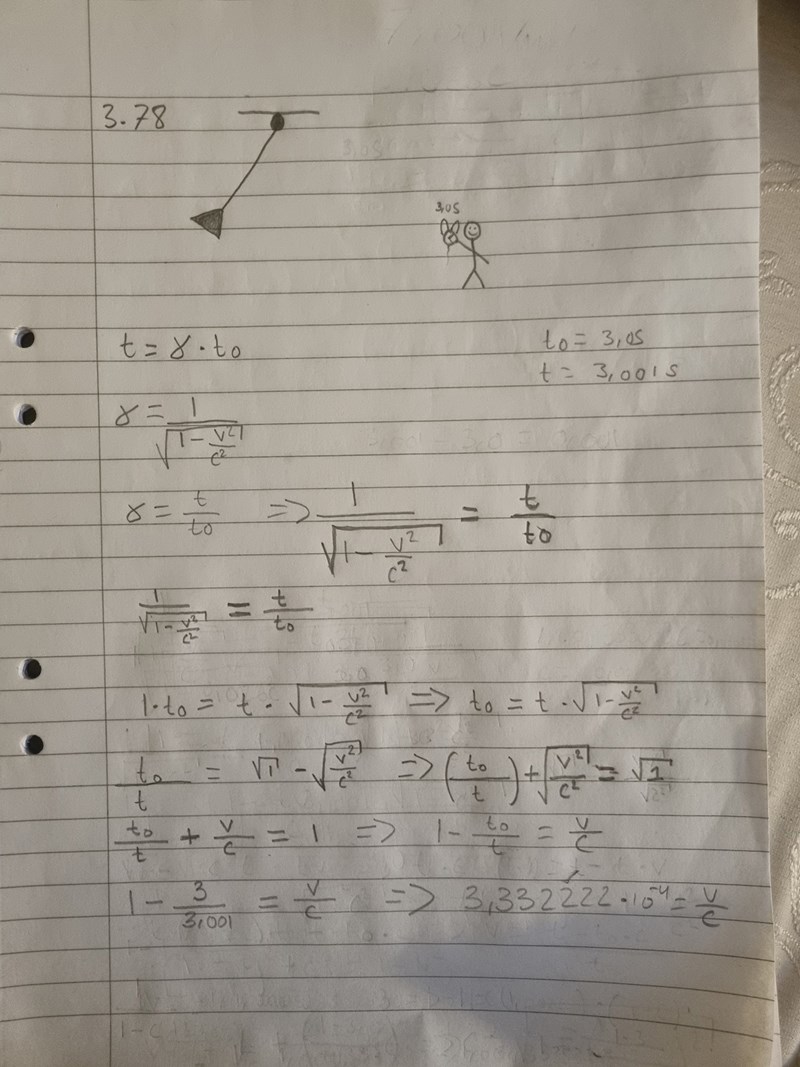 3.78
3,0s
t = γ · t₀
t₀ = 3,0s
t = 3,001s
γ = 1/√(1 - v²/c²)
γ = t/t₀ => 1/√(1 - v²/c²) = t/t₀
1/√(1 - v²/c²) = t/t₀
1·t₀ = t · √(1 - v²/c²) => t₀ = t · √(1 - v²/c²)
t₀/t = √1 - √(v²/c²) => (t₀/t) + √(v²/c²) = √1
t₀/t + v/c = 1 => 1 - t₀/t = v/c
1 - 3/3,001 = v/c => 3,332222 · 10⁻⁴ = v/c